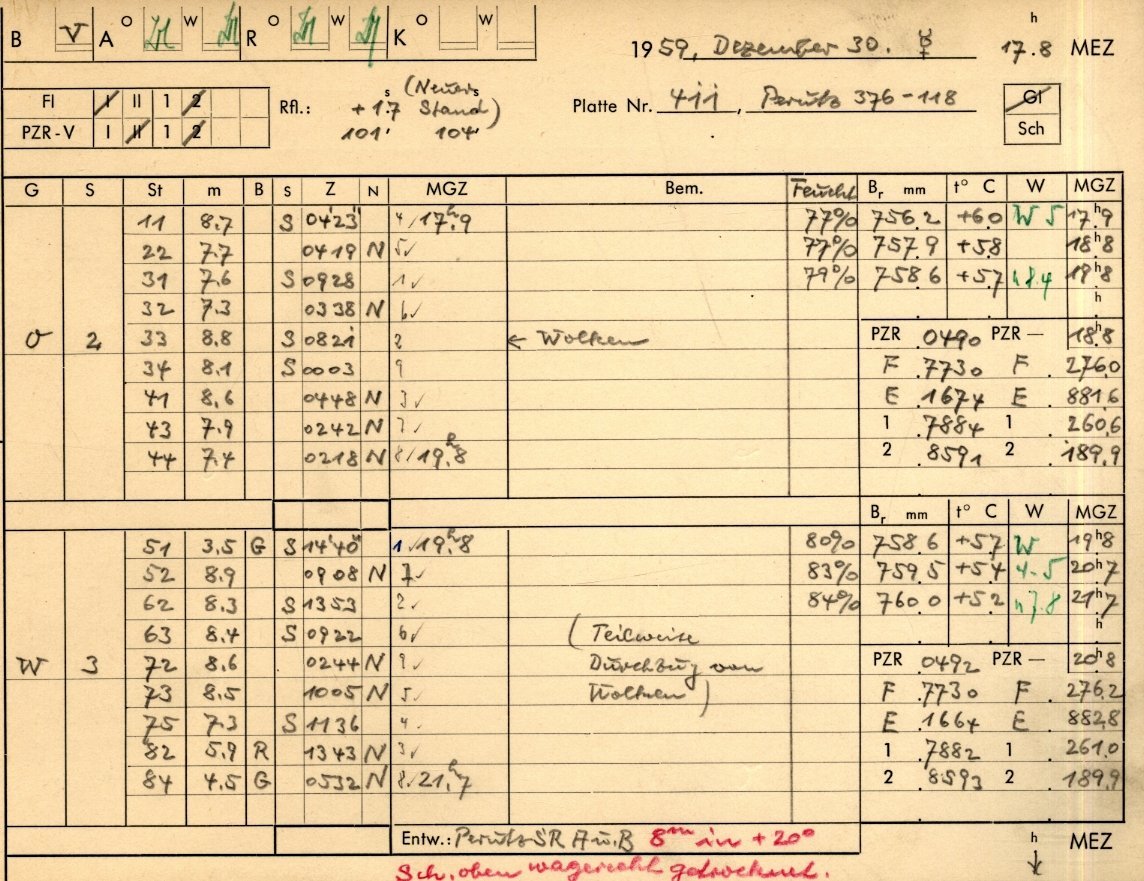 B V A O W R O W K O W
1959, Dezember 30. ☿ 17.8 h MEZ
Fl I II 1 2
PZR-V I II 1 2
Rfl.: +17 s (Neuer Stand)
101' 104'
Platte Nr. 411, Perutz 376-118
Gl
Sch
G S St m B S Z N MGZ Bem. Feucht Br mm t° C W MGZ
11 8.7 S 04'23" 4/17h.9 77% 756.2 +6.0 W 5 17h9
22 7.7 0419 N 5✓ 77% 757.9 +5.8 18h8
31 7.6 S 0928 1✓ 79% 758.6 +5.7 19h8
32 7.3 0338 N 6✓ h
O 2 33 8.8 S 0821 2 ← Wolken PZR 0490 PZR — 18h8
34 8.1 S 0003 9 F .7730 F 276.0
41 8.6 0448 N 3✓ E .1674 E 881.6
43 7.9 0242 N 7✓ 1 .7884 1 260.6
44 7.4 0218 N 8/19h.8 2 .8591 2 189.9
Br mm t° C W MGZ
51 3.5 G S 14'40" 1/19h.8 80% 758.6 +5.7 W 19h8
52 8.9 0908 N 7✓ 83% 759.5 +5.4 4-5 20h7
62 8.3 S 1353 2✓ 84% 760.0 +5.2 21h7
63 8.4 S 0922 6✓ (Teilweise h
W 3 72 8.6 0244 N 9✓ Durchzug von PZR 0492 PZR — 20h8
73 8.5 1005 N 5✓ Wolken) F .7730 F 276.2
75 7.3 S 1136 4✓ E .1664 E 882.8
82 5.9 R 1343 N 3✓ 1 .7882 1 261.0
84 4.5 G 0532 N 8/21h.7 2 .8593 2 189.9
Entw.: Perutz SR A u. B 8m in +20° h MEZ
Sch. oben wagerecht getrocknet. ↓